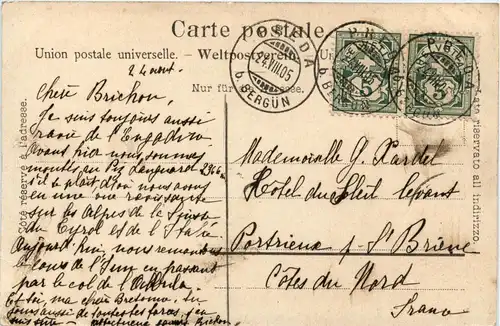 Carte postale
Union postale universelle. – Weltpostverein. – Un
Nur für
Côté réservé à l'adresse.
Lato riservato all indirizzo.
PREDA
24.VIII.05
b. BERGÜN
5 5
24 août.
Chère Brichon,
Je suis toujours aussi
ravie de l'Engadine
Avant hier nous sommes
montés au Piz Languard
s'il te plaît d'où nous avons
eu une vue ravissante
sur les Alpes de la Suisse
du Tyrol et de l'Italie
Aujourd'hui, nous remontons
le cours de l'Inn en passant
par le col de l'Albula.
Et toi, ma chère Bretonne. Tu
Mademoiselle G. Pardel
Hôtel du Soleil levant
Portrieux p. St Brieuc
Côtes du Nord
France